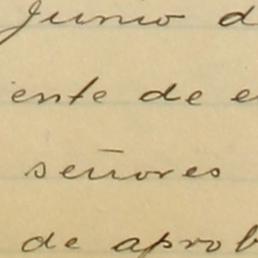 Junio d
iente de e
señores
de aprob